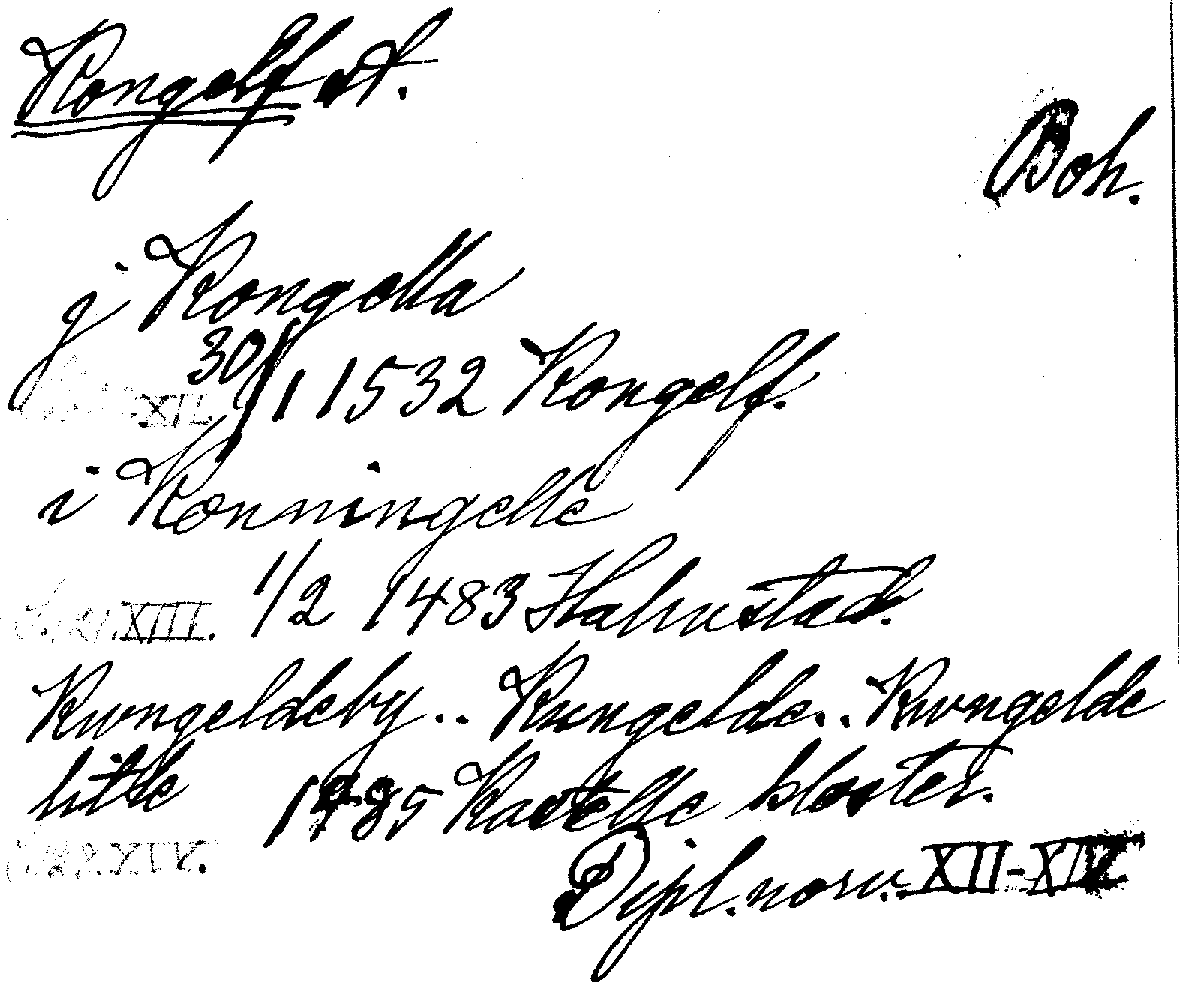 Kongelf st.
Boh.
j Kongella
XII. 30/1 1532 Kongelf.
i Konningelle
XIII. 1/2 1483 Halmstad.
Kwngeldeby.. Kungelde.. Kwngelde
litle 1485 Kastelle kloster.
XIV.
Dipl. norv. XII-XIV